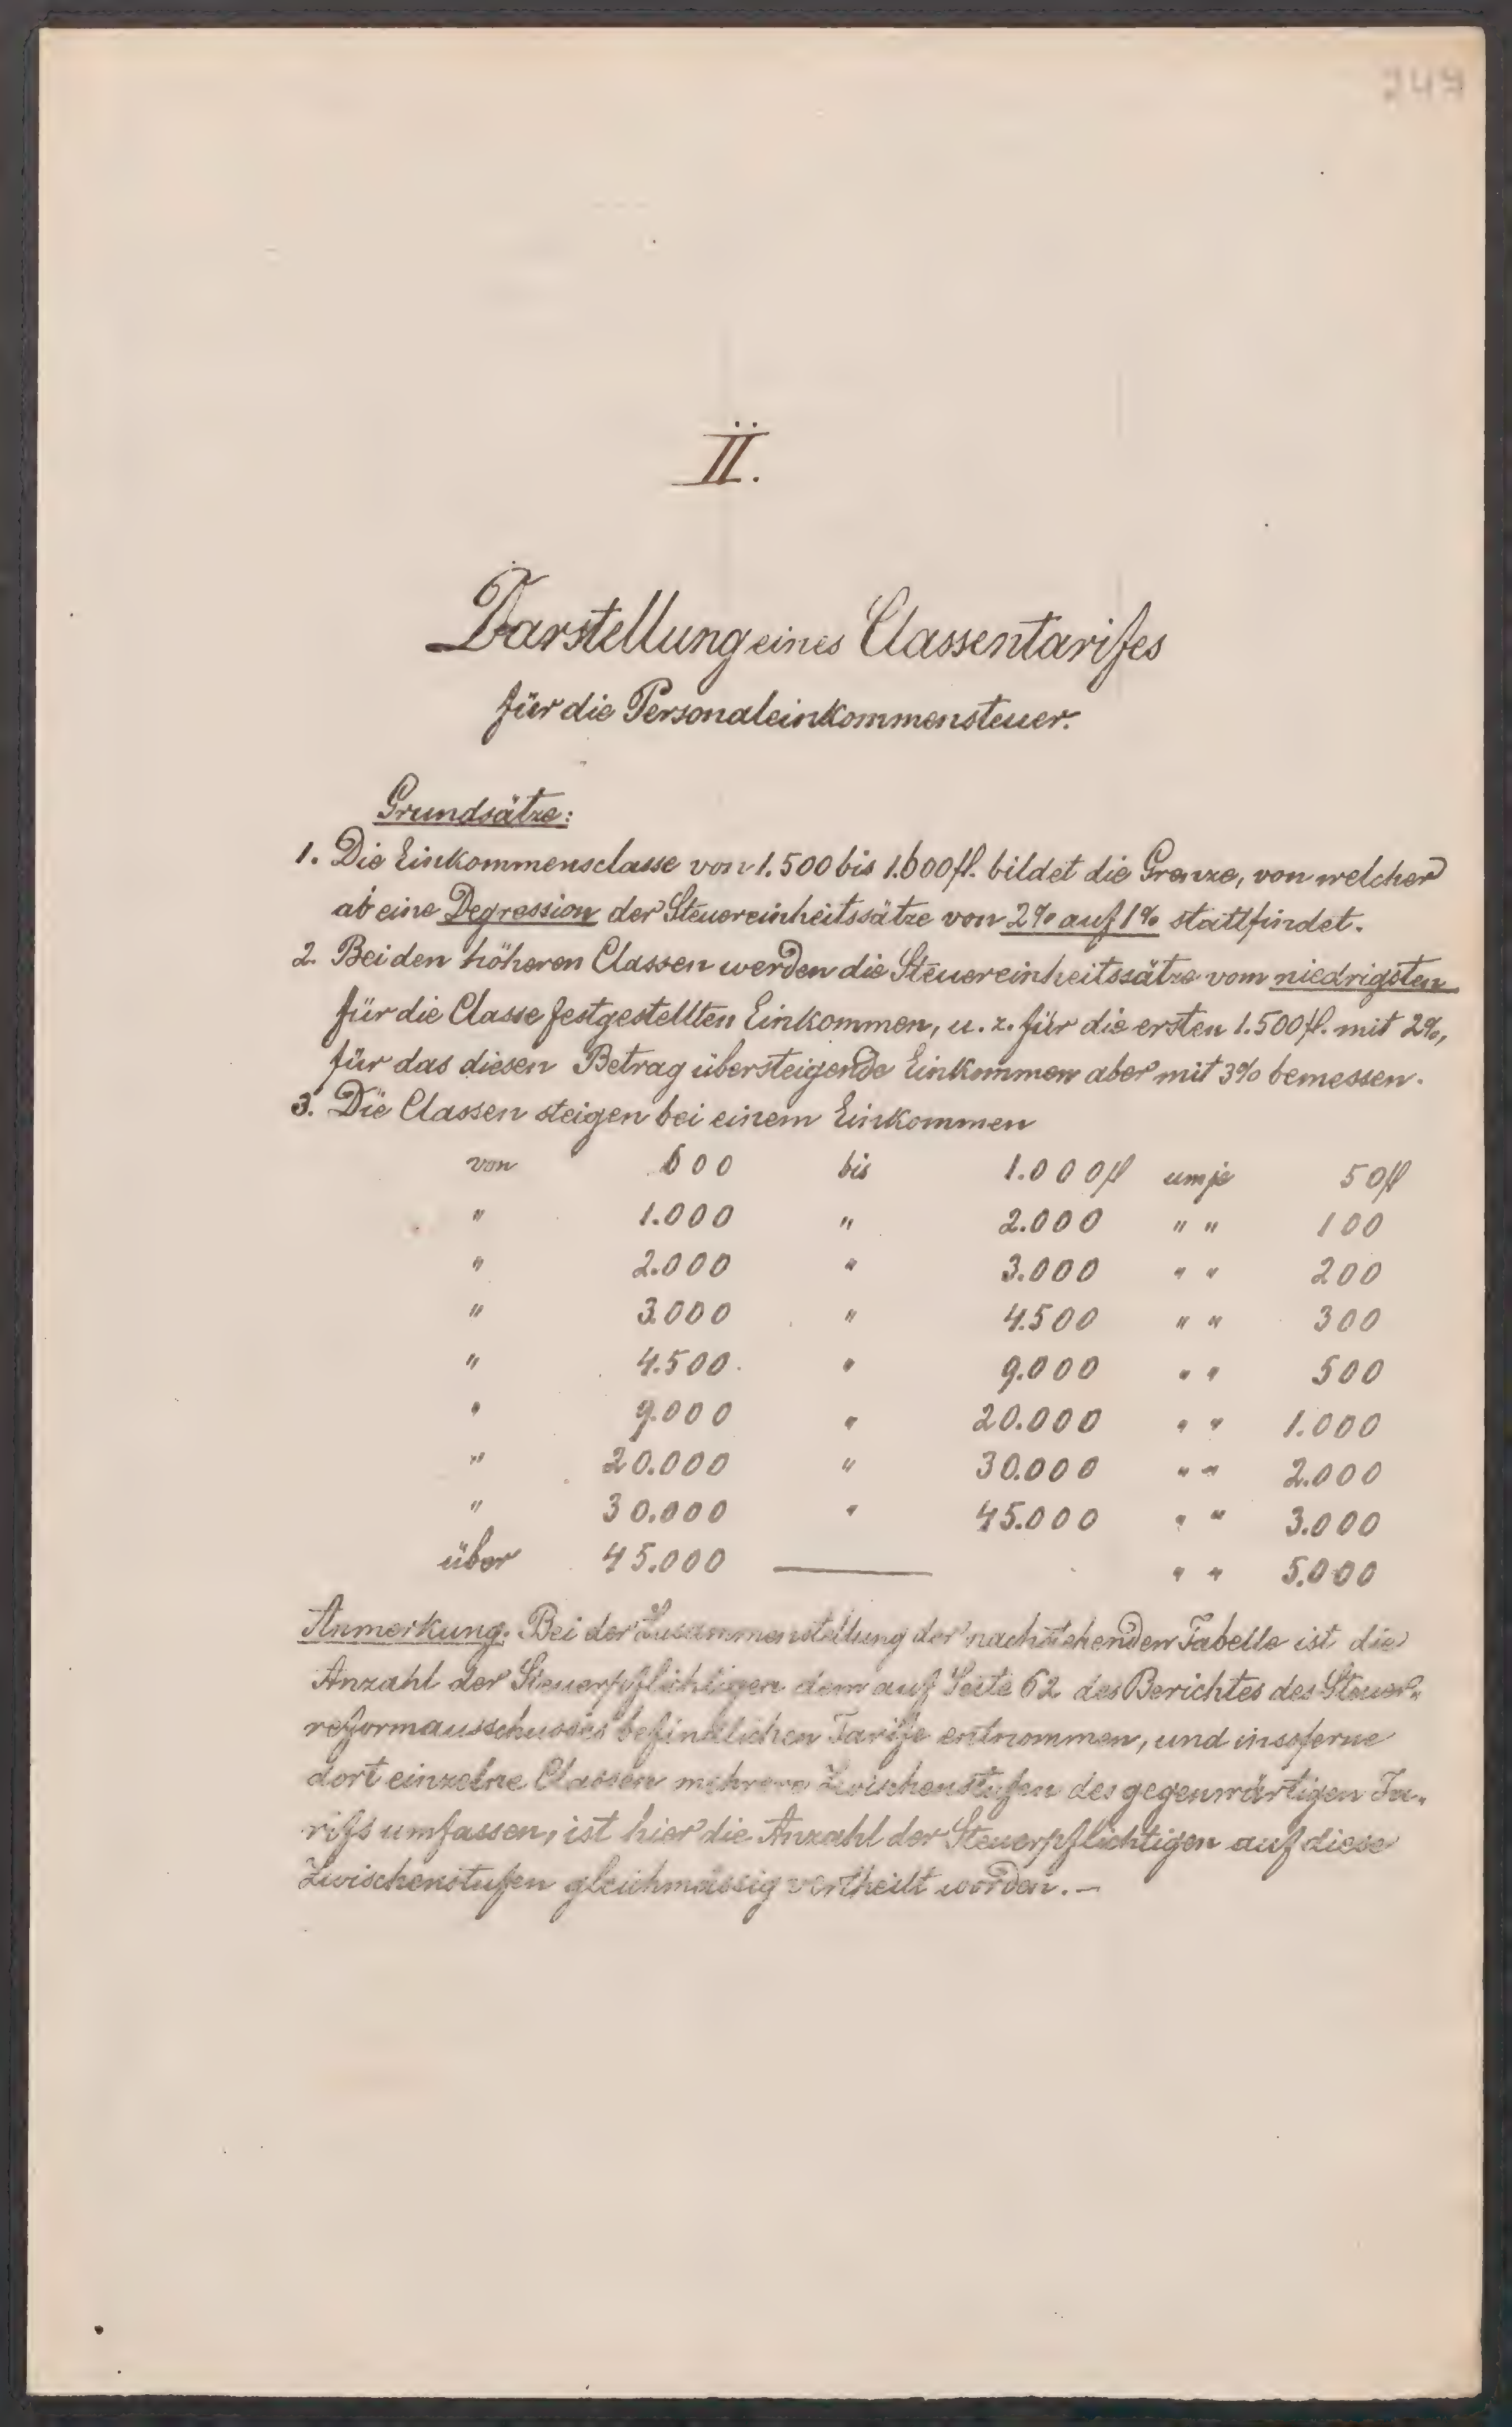 247
II.
Darstellung eines Classentarifes
für die Personaleinkommensteuer.
Grundsätze:
1. Die Einkommensclasse von 1.500 bis 1.600 fl. bildet die Grenze, von welcher
ab eine Degression der Steuereinheitssätze von 2% auf 1% stattfindet.
2. Bei den höheren Classen werden die Steuereinheitssätze vom niedrigsten
für die Classe festgestellten Einkommen, u. z. für die ersten 1.500 fl. mit 2%,
für das diesen Betrag übersteigende Einkommen aber mit 3% bemessen.
3. Die Classen steigen bei einem Einkommen
von 600 bis 1.000 fl um je 50 fl
" 1.000 " 2.000 " " 100
" 2.000 " 3.000 " " 200
" 3.000 " 4.500 " " 300
" 4.500 " 9.000 " " 500
" 9.000 " 20.000 " " 1.000
" 20.000 " 30.000 " " 2.000
" 30.000 " 45.000 " " 3.000
über 45.000 — " " 5.000
Anmerkung: Bei der Zusammenstellung der nachstehenden Tabelle ist die
Anzahl der Steuerpflichtigen dem auf Seite 62 des Berichtes des Steuer„
reformausschusses befindlichen Tarife entnommen, und insoferne
dort einzelne Classen mehrere Zwischenstufen des gegenwärtigen Ta„
rifs umfassen, ist hier die Anzahl der Steuerpflichtigen auf diese
Zwischenstufen gleichmässig vertheilt worden. —